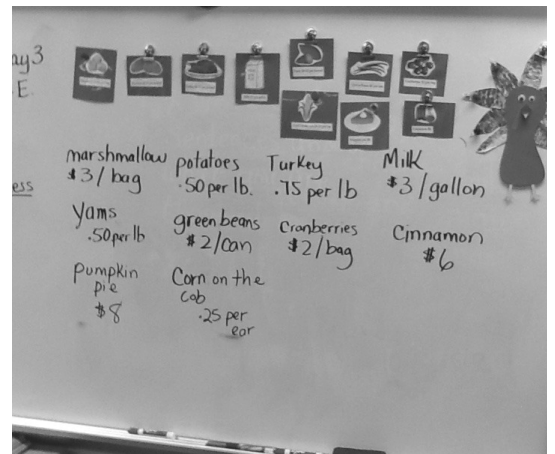 ay3
E.
ess
marshmallow
$3/bag
potatoes
.50 per lb.
Turkey
.75 per lb
Milk
$3/gallon
Yams
.50 per lb
green beans
$2/can
Cranberries
$2/bag
Cinnamon
$6
pumpkin
pie
$8
Corn on the
cob
.25 per
ear